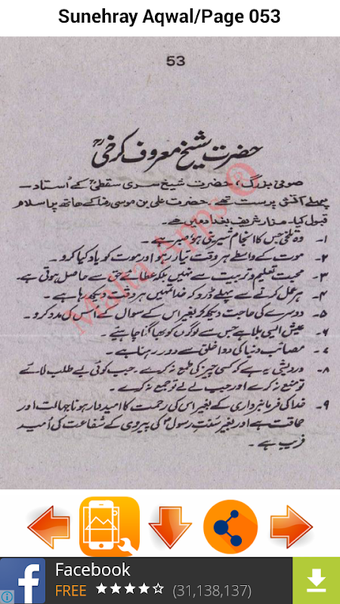 Sunehray Aqwal/Page 053
53
حضرت شیخ معروف کرخیؒ
صوفی بزرگ، حضرت شیخ سری سقطیؒ کے استاد –
پہلے آتش پرست تھے، حضرت علی بن موسیٰ رضا کے ہاتھ پر اسلام
قبول کیا۔ مزار شریف بغداد میں ہے۔
۱۔ وہ تلخی جس کا انجام شیریں ہو صبر ہے۔
۲۔ موت کے واسطے ہر وقت تیار رہو اور موت کو یاد کیا کرو۔
۳۔ محبت تعلیم و تربیت سے نہیں بلکہ عطائے حق سے حاصل ہوتی ہے۔
۴۔ ہر عمل کرنے سے پہلے ڈرو کہ خدا تمہیں ہر وقت دیکھ رہا ہے۔
۵۔ دوسرے کی حاجت دیکھ کر بغیر اس کے سوال کے اس کی مدد کرو۔
۶۔ عیش ایسی بلا ہے جس سے لوگوں کو بھاگنا چاہئے۔
۷۔ مصائب دنیا کی دوا خلق سے دور رہنا ہے۔
۸۔ درویشی یہ ہے کہ کسی چیز کی طمع نہ کرے۔ جب کوئی بے طلب لائے
تو منع نہ کرے اور جب لے لے تو جمع نہ کرے۔
۹۔ خدا کی فرمانبرداری کے بغیر اس کی رحمت کا امیدوار ہونا جہالت اور
حماقت ہے اور بغیر سنت رسولؐ کی پیروی کے شفاعت کی امید
فریب ہے۔
Facebook
FREE ★★★★☆ (31,138,137)